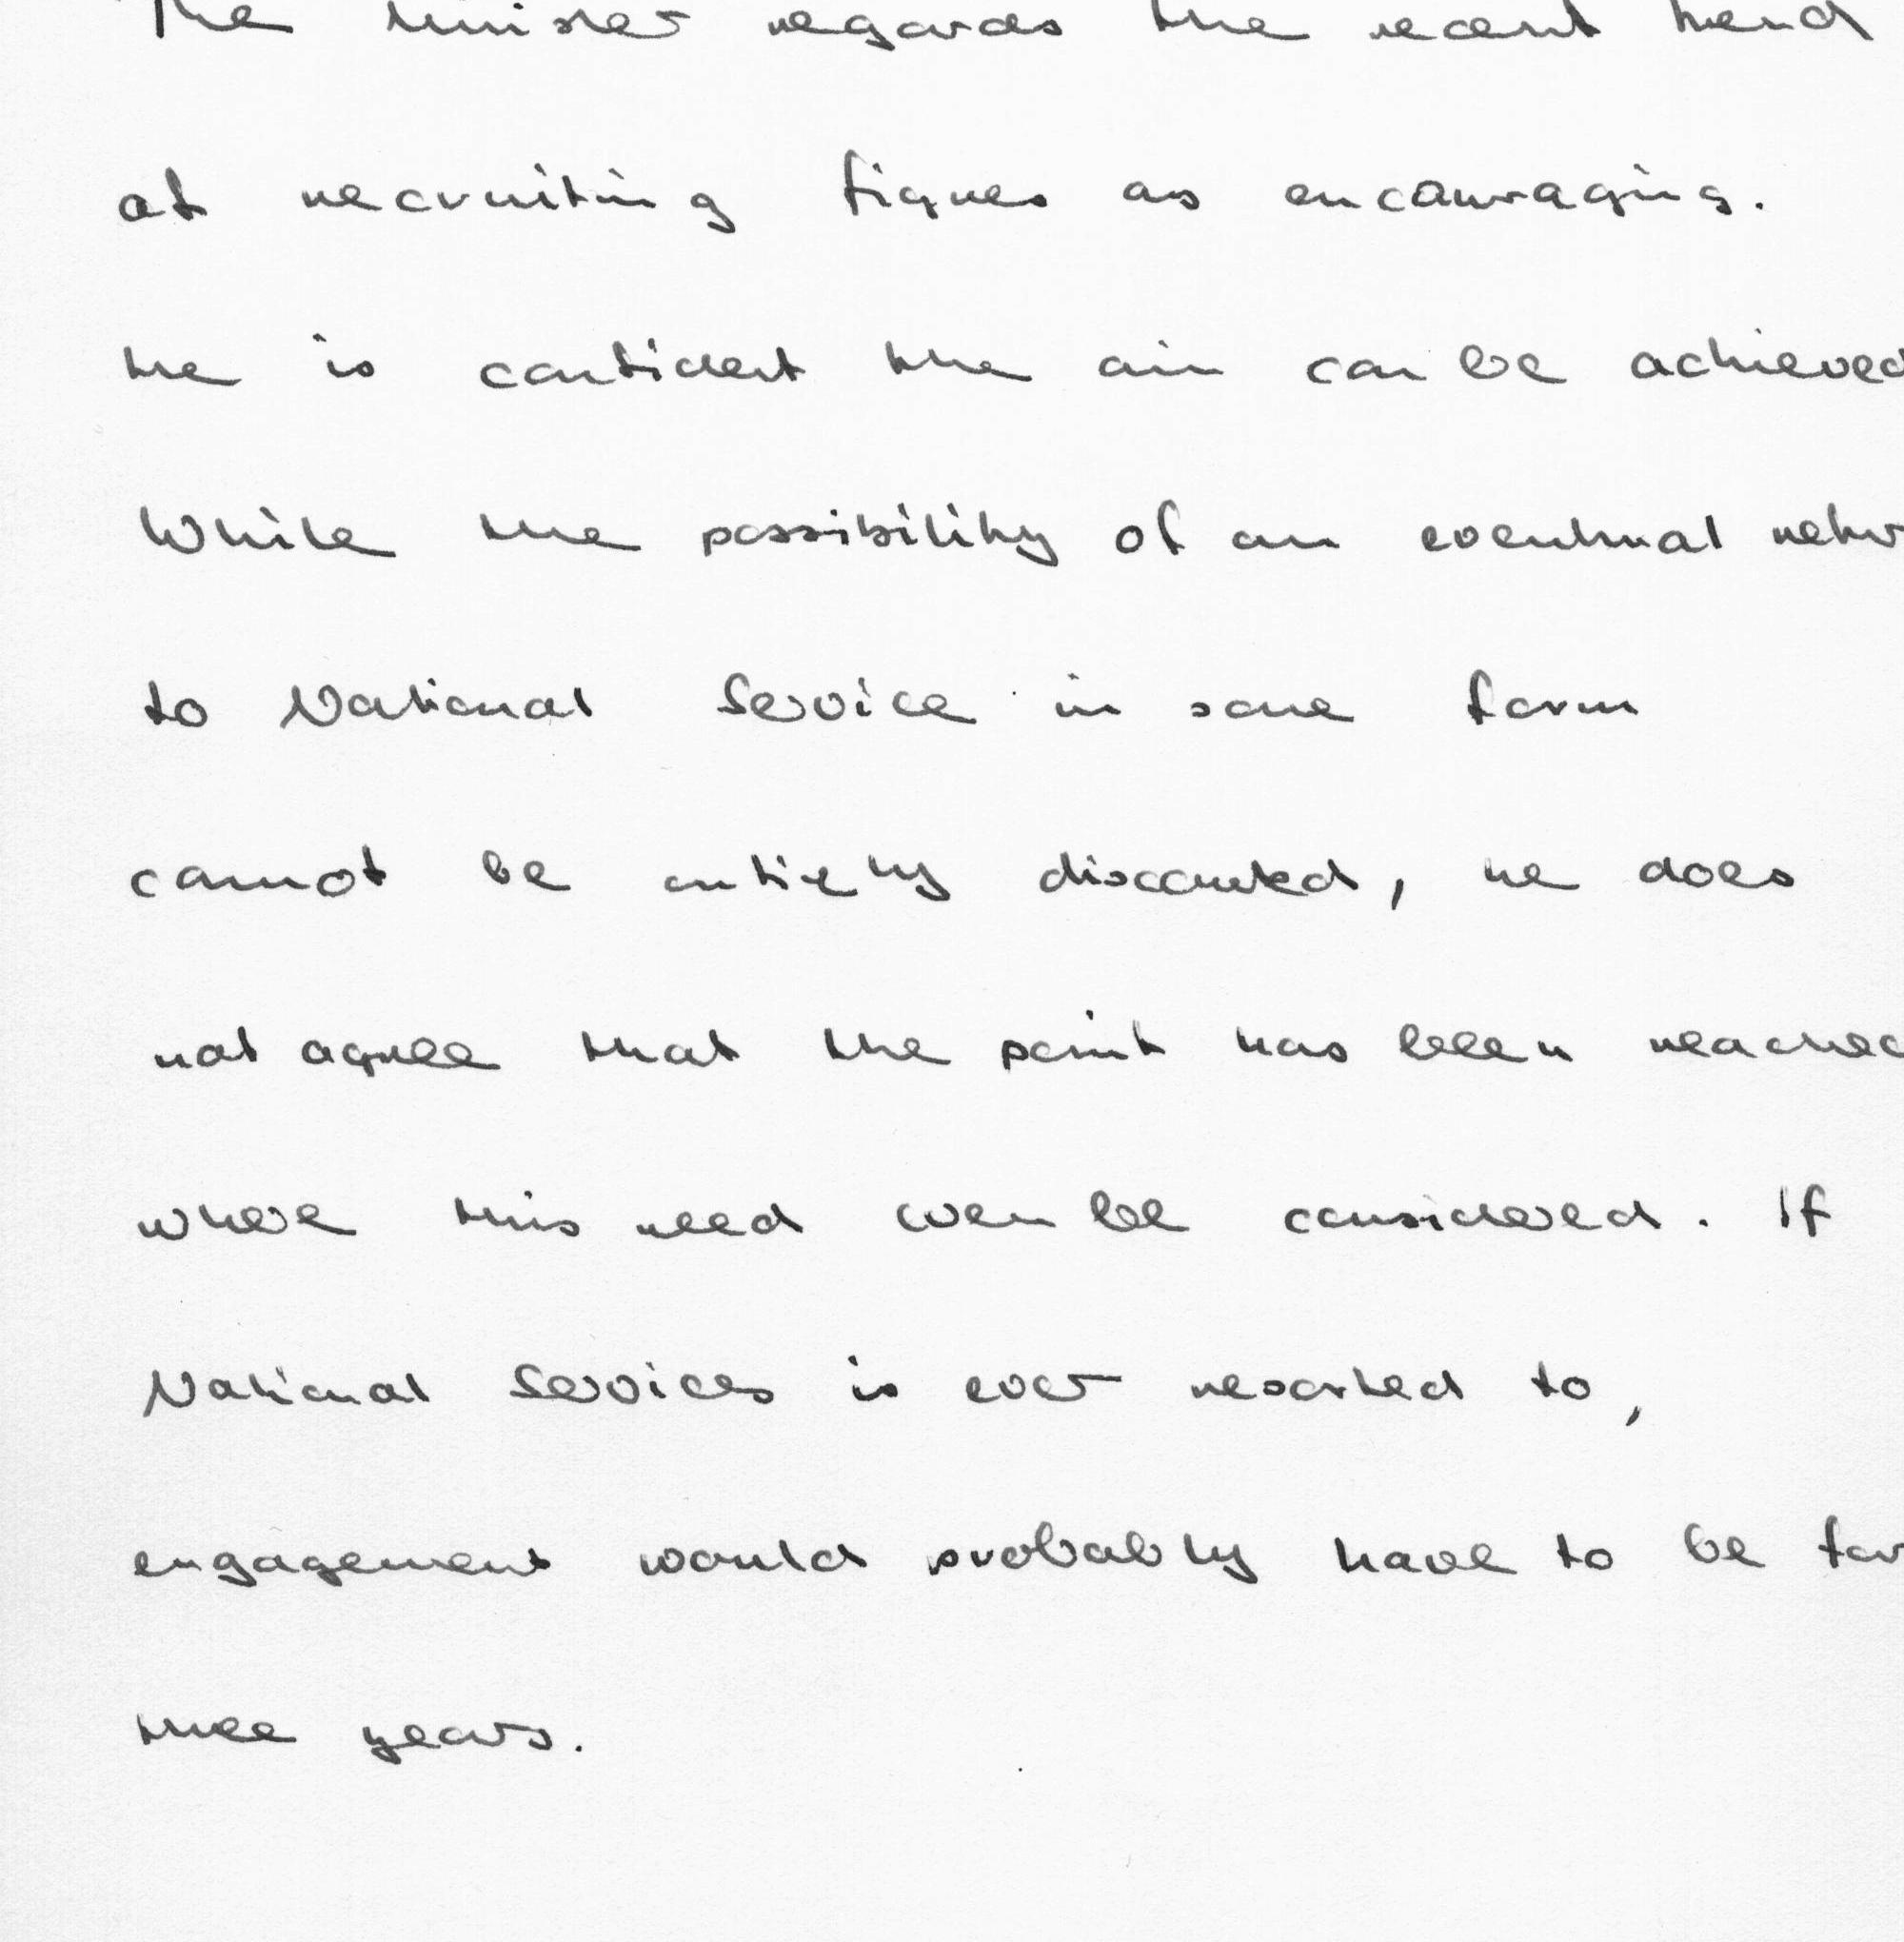 The Minister regards the recent trend
of recruiting figures as encouraging.
he is confident the aim can be achieved
While the possibility of an eventual retur
to National Service in some form
cannot be entirely discounted, he does
not agree that the point has been reached
where this need even be considered. If
National Services is ever resorted to,
engagement would probably have to be for
three years.